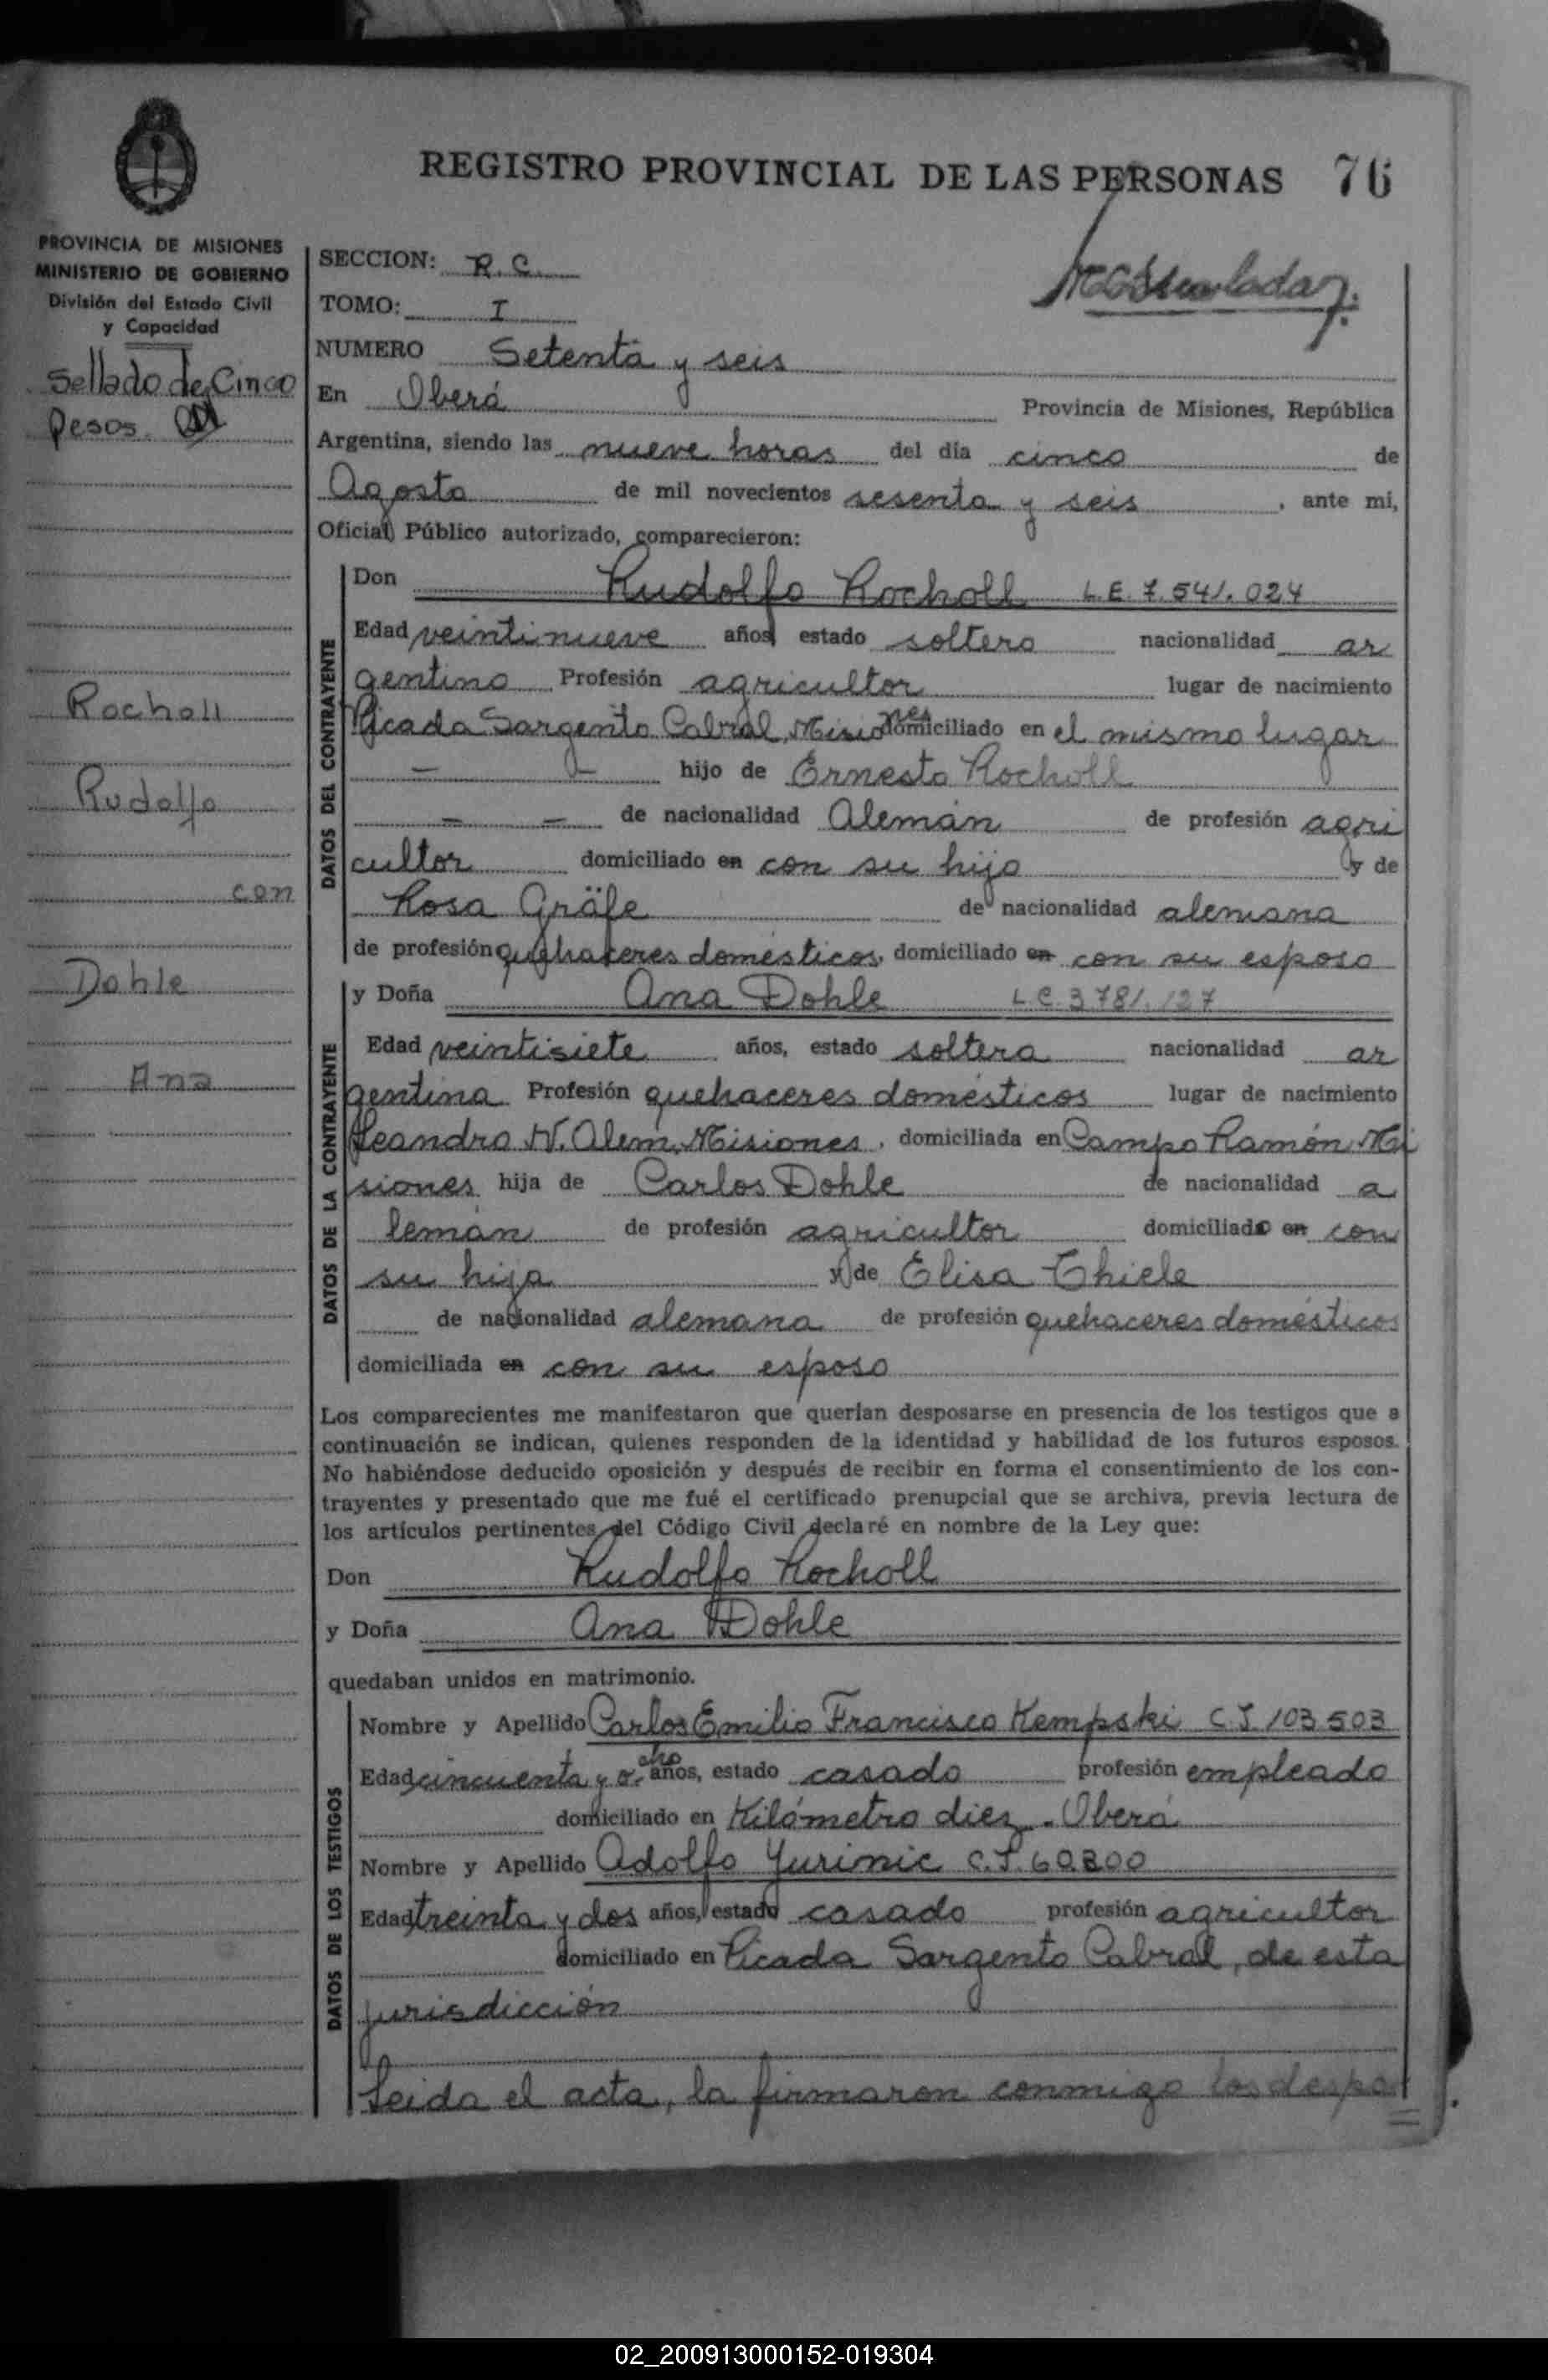 REGISTRO PROVINCIAL DE LAS PERSONAS 76
PROVINCIA DE MISIONES
MINISTERIO DE GOBIERNO
División del Estado Civil
y Capacidad
Sellado de Cinco
Pesos.
Rocholl
Rudolfo
con
Dohle
Ana
SECCION: R. C.
TOMO: I
NUMERO Setenta y seis
En Oberá Provincia de Misiones, República
Argentina, siendo las nueve horas del día cinco de
Agosto de mil novecientos sesenta y seis, ante mi,
Oficial Público autorizado, comparecieron:
DATOS DEL CONTRAYENTE
Don Rudolfo Rocholl L.E. 7.541.024
Edad veintinueve años estado soltero nacionalidad ar
gentino Profesión agricultor lugar de nacimiento
Picada Sargento Cabral, Misiones domiciliado en el mismo lugar
— — hijo de Ernesto Rocholl
— — de nacionalidad Alemán de profesión agri
cultor domiciliado en con su hijo y de
Rosa Gräfe de nacionalidad alemana
de profesión quehaceres domésticos, domiciliado en con su esposo
DATOS DE LA CONTRAYENTE
y Doña Ana Dohle L.C. 3.781.127
Edad veintisiete años, estado soltera nacionalidad ar
gentina Profesión quehaceres domésticos lugar de nacimiento
Leandro N. Alem, Misiones, domiciliada en Campo Ramón Mi
siones hija de Carlos Dohle de nacionalidad a
lemán de profesión agricultor domiciliado en con
su hija y de Elisa Thiele
de nacionalidad alemana de profesión quehaceres domésticos
domiciliada en con su esposo
Los comparecientes me manifestaron que querían desposarse en presencia de los testigos que a
continuación se indican, quienes responden de la identidad y habilidad de los futuros esposos.
No habiéndose deducido oposición y después de recibir en forma el consentimiento de los con-
trayentes y presentado que me fué el certificado prenupcial que se archiva, previa lectura de
los artículos pertinentes del Código Civil declaré en nombre de la Ley que:
Don Rudolfo Rocholl
y Doña Ana Dohle
quedaban unidos en matrimonio.
DATOS DE LOS TESTIGOS
Nombre y Apellido Carlos Emilio Francisco Kempski C.I. 103 503
Edad cincuenta y ocho años, estado casado profesión empleado
domiciliado en Kilómetro diez - Oberá
Nombre y Apellido Adolfo Yurinic C.I. 60.200
Edad treinta y dos años, estado casado profesión agricultor
domiciliado en Picada Sargento Cabral, de esta
jurisdicción
Leida el acta, la firmaron conmigo los despo
=
02_200913000152-019304